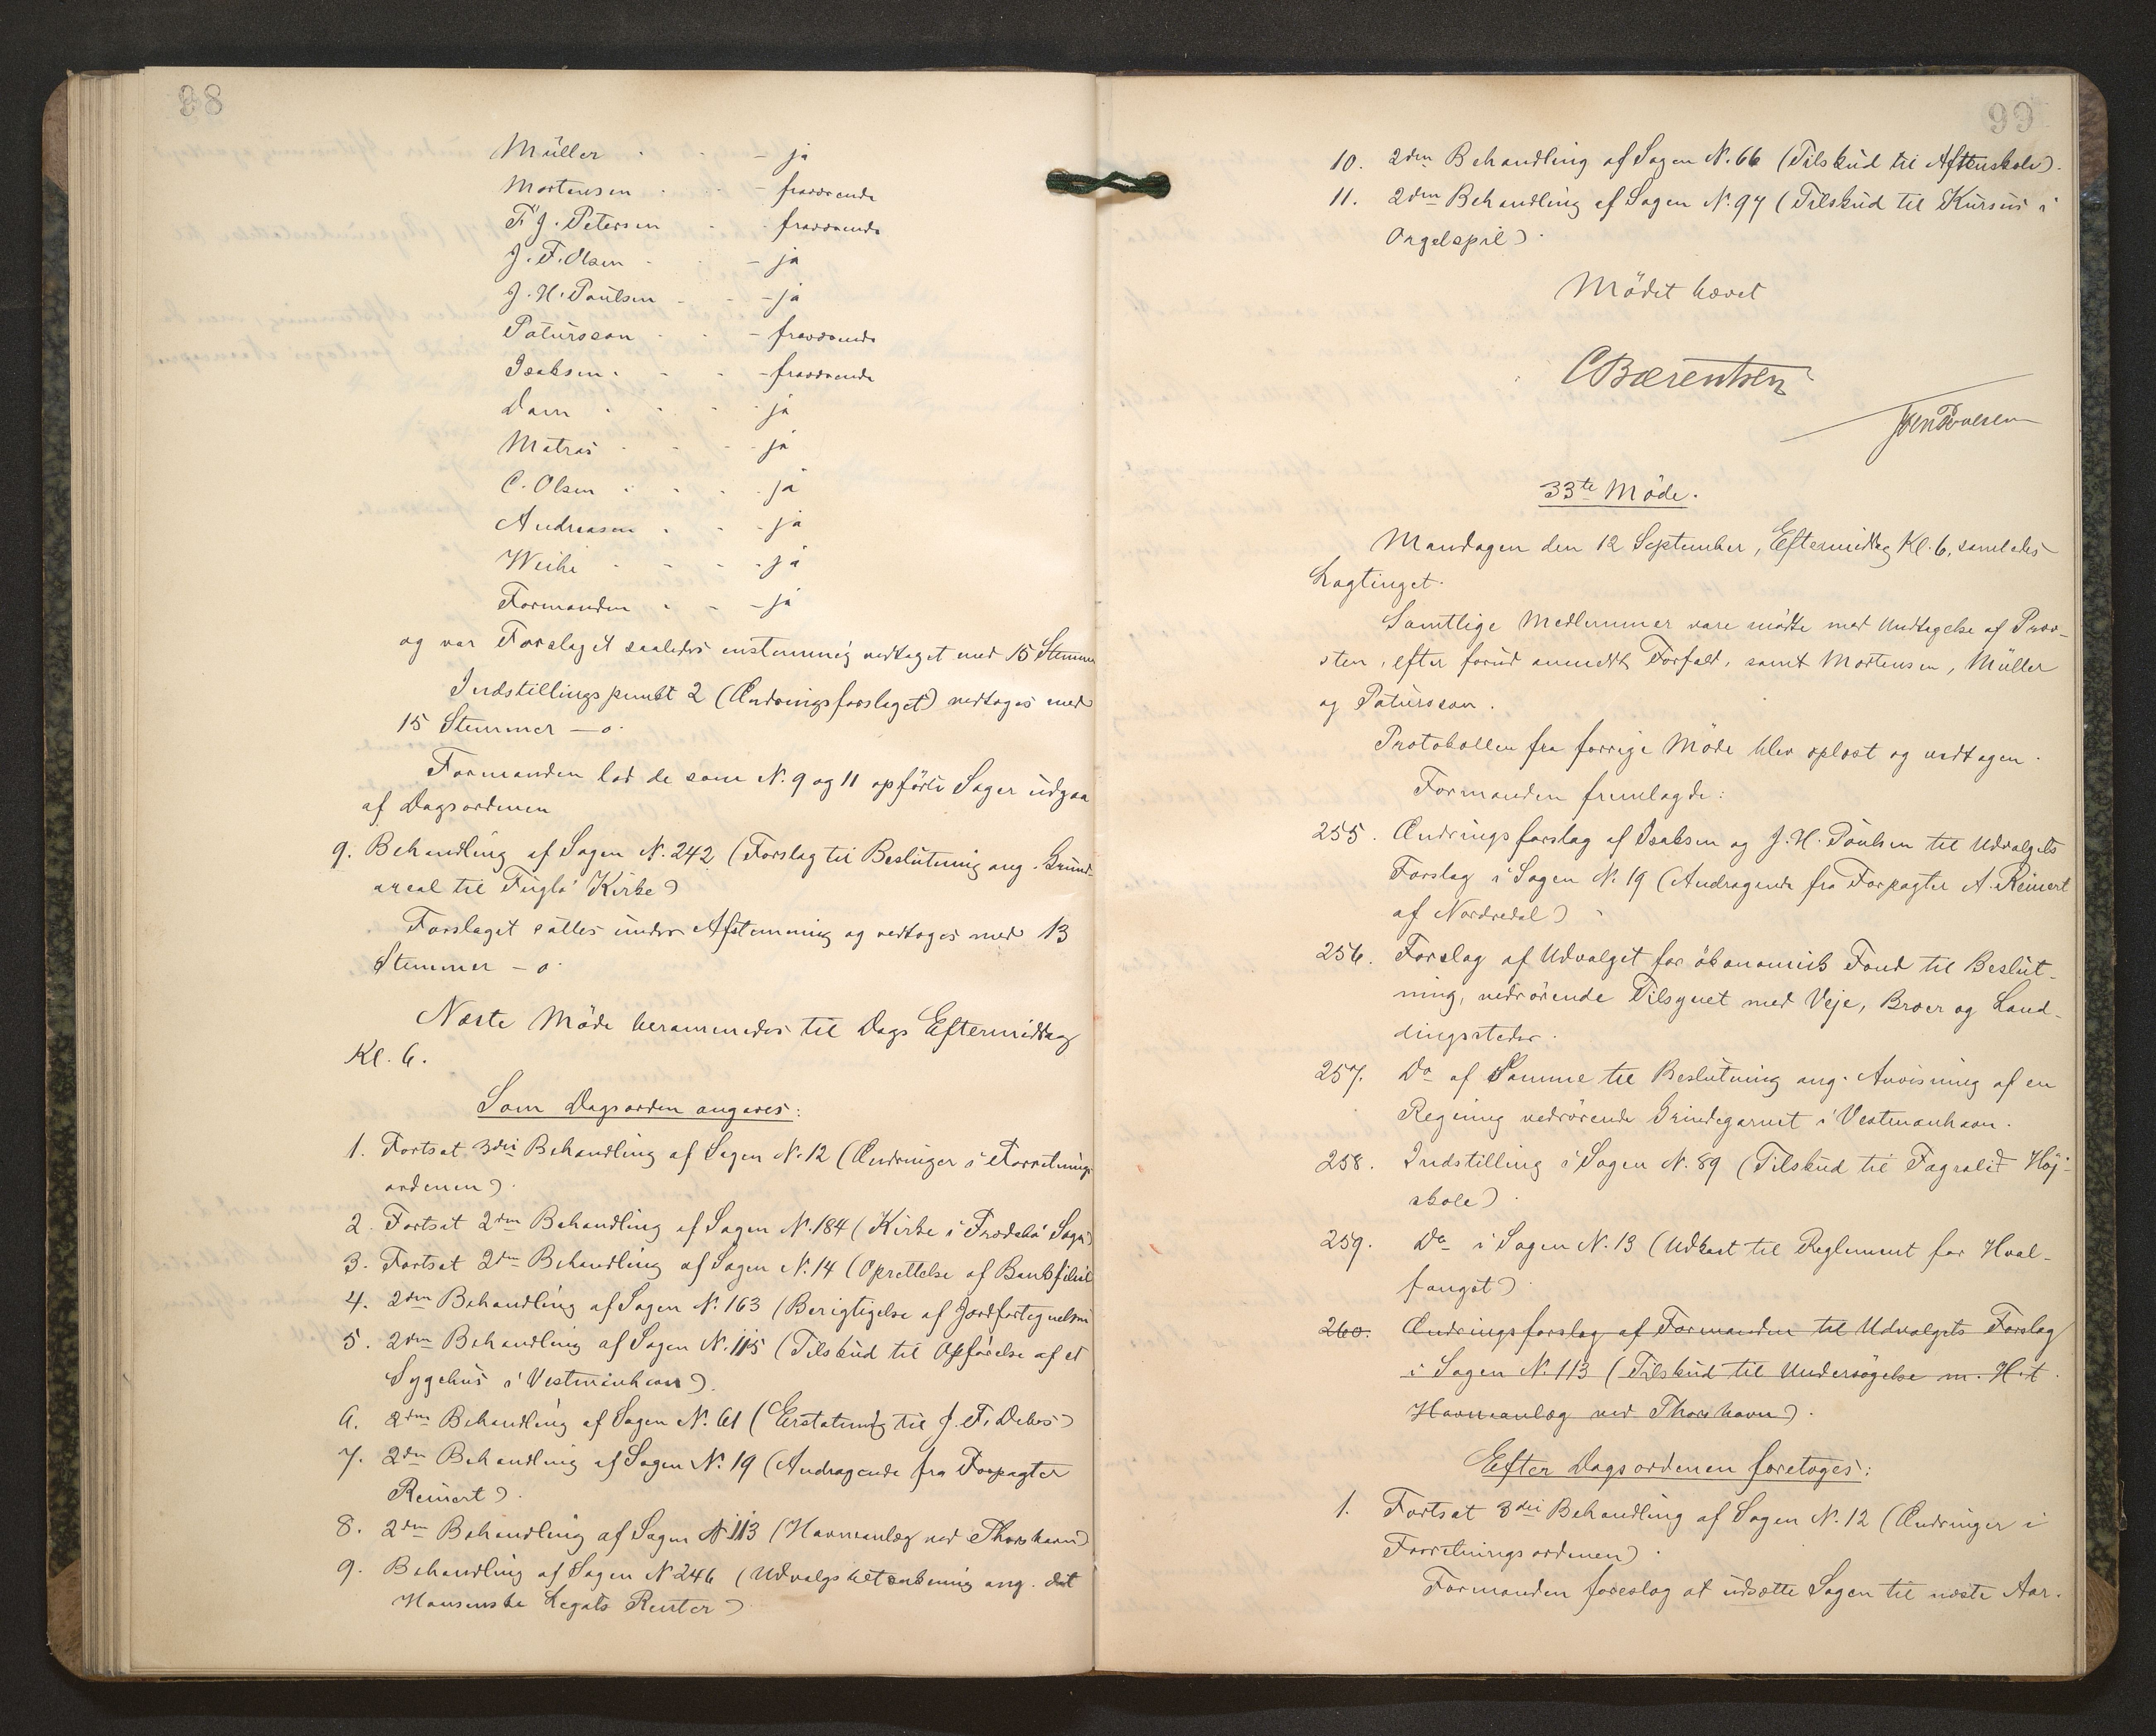 98
Müller - ja
Mortensen - fraværende
F. J. Petersen - fraværende
J. F. Olsen - ja
J. H. Poulsen - ja
Patursson - fraværende
Isaksen - fraværende
Dam - ja
Matras - ja
C. Olsen - ja
Andreasen - ja
Weihe - ja
Formanden - ja
og var Forslaget saaledes enstemmig vedtaget med 15 Stemmer
Indstillingspunkt 2 (Ændringsforslaget) vedtoges med
15 Stemmer - o
Formanden lod de som N. 9 og 11 opförte Sager udgaa
af Dagsordenen
9. Behandling af Sagen N. 242 (Forslag til Beslutning ang. Grund-
areal til Fuglö Kirke)
Forslaget sattes under Afstemning og vedtoges med 13
Stemmer - o
Næste Möde berammedes til Dags Eftermiddag
Kl. 6.
Som Dagsorden angaves:
1. Fortsat 3die Behandling af Sagen N. 12 (Ændringer i Forretnings-
ordenen)
2. Fortsat 2den Behandling af Sagen N. 184 (Kirke i Frodebö Sogn)
3. Fortsat 2den Behandling af Sagen N. 14 (Oprettelse af Bankfilial
4. 2den Behandling af Sagen N. 163 (Berigtigelse af Jordfortegnelsen
5. 2den Behandling af Sagen N. 115 (Tilskud til Opförelse af et
Sygehus i Vestmanhavn)
6. 2den Behandling af Sagen N. 61 (Erstatning til J. F. Debes)
7. 2den Behandling af Sagen N. 19 (Andragende fra Forpagter
Reinert)
8. 2den Behandling af Sagen N 113 (Havneanlæg ved Thorshavn)
9. Behandling af Sagen N 246 (Udvalgsbetænkning ang. det
Hansenske Legats Renter)
99
10. 2den Behandling af Sagen N. 66 (Tilskud til Aftenskole).
11. 2den Behandling af Sagen N. 94 (Tilskud til Kursus i
Orgelspil).
Mödet hævet
C Bærentsen
33te Möde.
Mandagen den 12 September, Eftermiddag Kl. 6, samledes
Lagtinget.
Samtlige Medlemmer vare mödte med Undtagelse af Prov-
sten, efter forud anmeldt Forfald, samt Mortensen, Müller
og Patursson.
Protokollen fra forrige Möde blev oplæst og vedtagen.
Formanden fremlagde:
255. Ændringsforslag af Isaksen og J. H. Poulsen til Udvalgets
Forslag i Sagen N. 19 (Andragende fra Forpagter A. Reinert
af Nordredal)
256. Forslag af Udvalget for ökonomisk Fond til Beslut-
ning, vedrörende Tilsynet med Veje, Broer og Land-
dingssteder.
257. Do af Samme til Beslutning ang. Anvisning af en
Regning vedrörende Grindegarnet i Vestmanhavn.
258. Indstilling i Sagen N. 89 (Tilskud til Fagralid Höj-
skole)
259. Do i Sagen N. 13 (Udkast til Reglement for Hval-
fangst)
260. Ændringsforslag af Formanden til Udvalgets Forslag
i Sagen N. 113 (Tilskud til Undersögelse m. H. t.
Havneanlæg ved Thorshavn).
Efter Dagsordenen foretoges:
1. Fortsat 3die Behandling af Sagen N. 12 (Ændringer i
Forretningsordenen)
Formanden foreslog at udsætte Sagen til næste Aar.